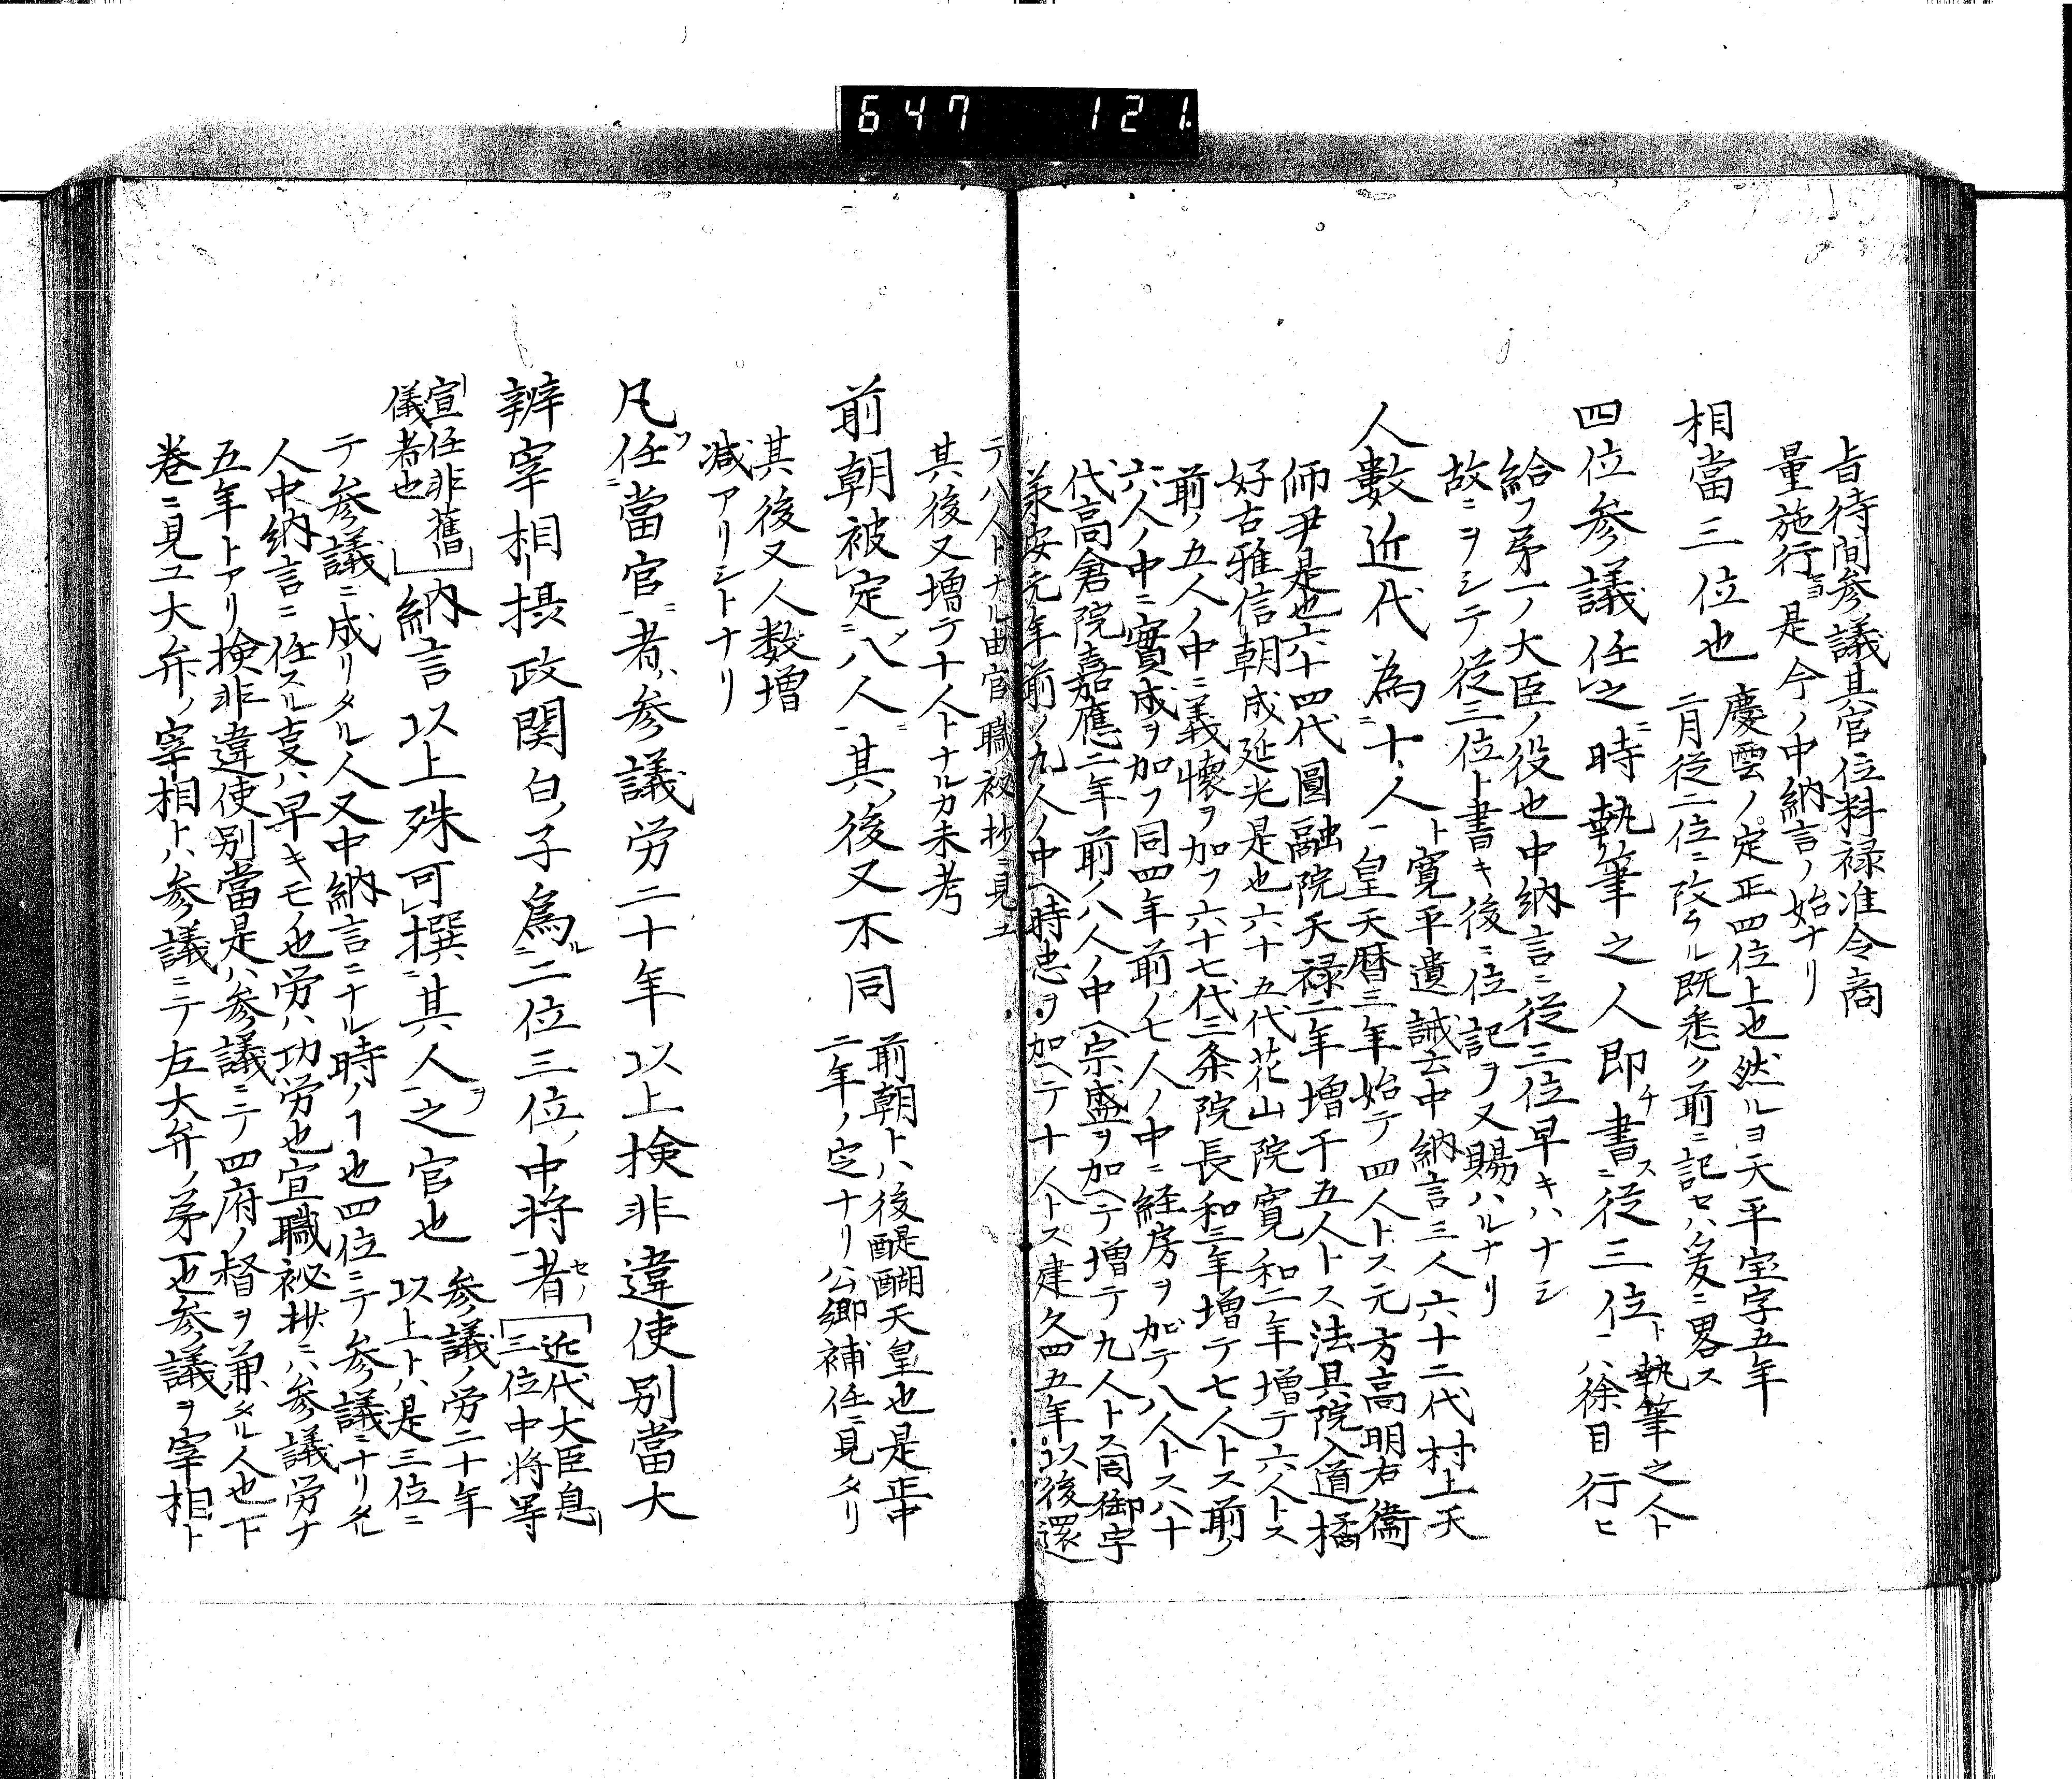 647 121.
旨待間参議其官位料禄准令商
量施行ヨ是今ノ中納言ノ始ナリ
相當三位也 慶雲ノ定正四位上也然ルヨ天平宝字五年
二月従二位ニ改ラル既悉ク前ニ記セハ爰ニ畧ス
四位参議任之時執筆之人即チ書ス従三位ト執筆之人ト
ハ徐目行ヒ
給フ第一ノ大臣ノ役也中納言ニ従三位早キハナシ
故ニヲシテ従三位ト書キ後ニ位記ヲ又賜ハルナリ
人數近代為十人ト寛平遺誡云中納言三人六十二代村上天
皇天暦三年始テ四人トス元方高明右衞
師尹是也六十四代圓融院天禄二年増テ五人トス法具院入道橘
好古雅信朝成延光是也六十五代花山院寛和二年増テ六人トス
前ノ五人ノ中ニ義懐ヲ加フ六十七代三条院長和三年増テ七人トス前ノ
六人ノ中ニ實成ヲ加フ同四年前ノ七人ノ中ニ経房ヲ加テ八人トス八十
代高倉院嘉應二年前ノ八人ノ中ヘ宗盛ヲ加ヘテ増テ九人トス同御宇
羕安元年前ノ九人ノ中ヘ時忠ヲ加ヘテ十人トス建久四五年以後還
テ八人トナル由官職秘抄ニ見ユ
其後又増テ十人トナルカ未考
前朝被定八人其後又不同 前朝トハ後醍醐天皇也是正中
二年ノ定ナリ公卿補任ニ見タリ
其後又人数増
减アリシトナリ
凡任當官者ハ参議労二十年以上検非違使別當大
辨宰相摂政関白ノ子為ル二位三位ノ中将者 近代大臣息
三位中将等
宣任非舊
儀者也 納言以上殊可撰其人之官也 参議ノ労二十年
以上トハ是三位ニ
テ参議ニ成リタル人又中納言ニナル時ノ也四位ニテ参議ニナリタル
人中納言ニ任スル叓ハ早キモノ也労ハ功労也宣職祕抄ニハ参議労ナ
五年トアリ検非違使別當是ハ参議ニテ四府ノ督ヲ兼タル人也下
巻ニ見ユ大弁ノ宰相トハ参議ニテ左大弁ノ㐧一也参議ヲ宰相ト